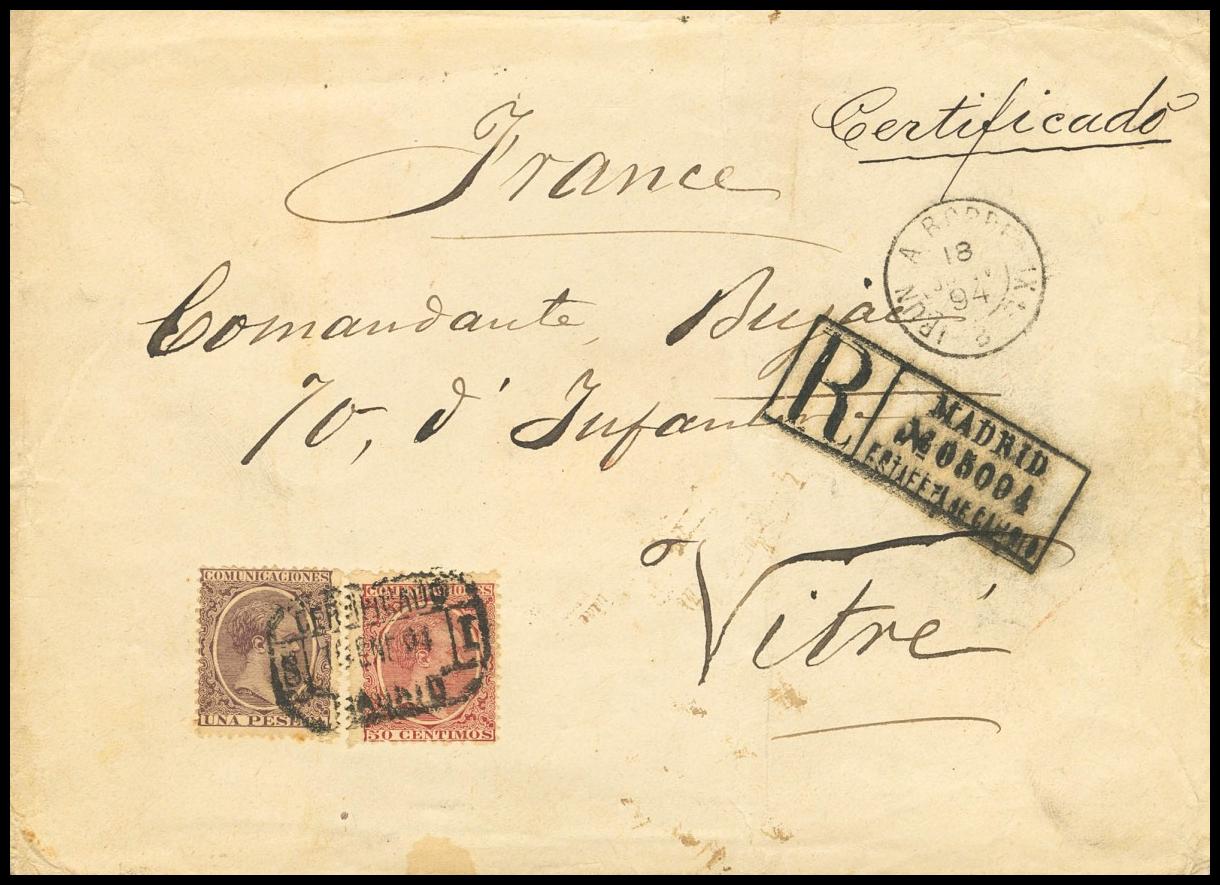 Certificado
France
Comandante Bujac
70, d' Infanterie
Vitré
A BORDEAUX
18
94
IRUN
R
MADRID
№ 05094
ESTAFETA DE CAMBIO
COMUNICACIONES
UNA PESETA
COMUNICACIONES
50 CENTIMOS
CERTIFICADO
ENE 94
MADRID